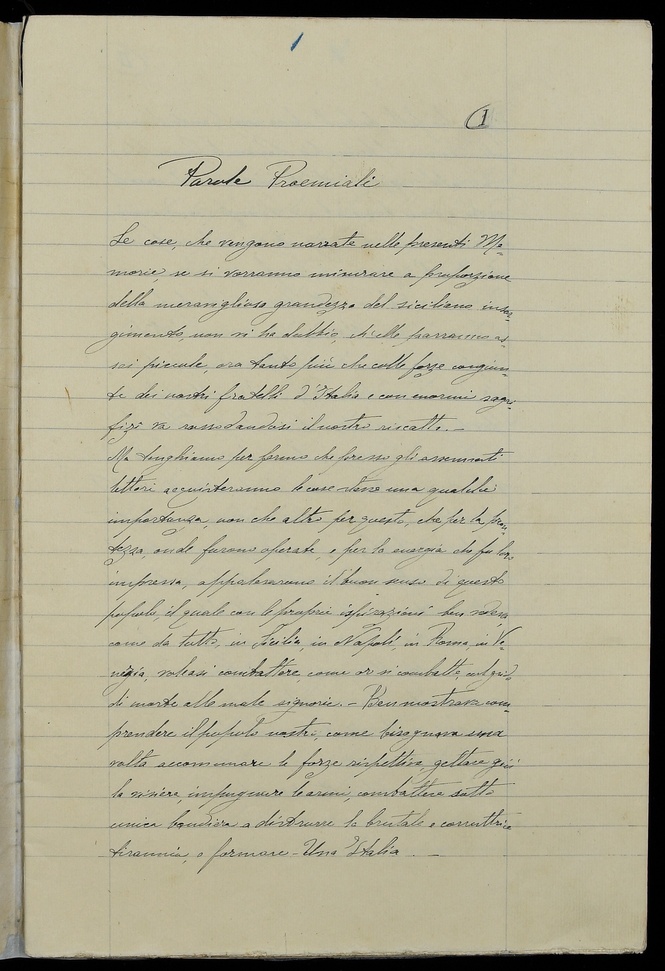 1
Parole Proemiali
Le cose, che vengono narrate nelle presenti Me-
morie, se si vorranno misurare a proporzione
della meravigliosa grandezza del siciliano insor-
gimento, non vi ha dubbio, ch'elle parranno as-
sai piccole, ora tanto più che colle forze congiun-
te dei nostri fratelli d'Italia e con enormi sagri-
fizî va rassodandosi il nostro riscatto. —
Ma tenghiamo per fermo che presso gli assennati
lettori acquisteranno le cose stesse una qualche
importanza, non che altro per questo, che per la pron-
tezza, onde furono operate, e per la energia che fu loro
impressa, appalesarono il buon senso di questo
popolo, il quale con le proprie ispirazioni ben vedeva
come da tutti, in Sicilia, in Napoli, in Roma, in Ve-
nezia, voleasi combattere, come or si combatte, col gri-
di morte alle male signorie. — Ben mostrava com-
prendere il popolo nostro, come bisognava una
volta accomunare le forze rispettive, gettare giù
la visiera, impugnare le armi, combattere sotto
unica bandiera a distrurre la brutale e corruttrice
tirannia, e formare - Una Italia. —